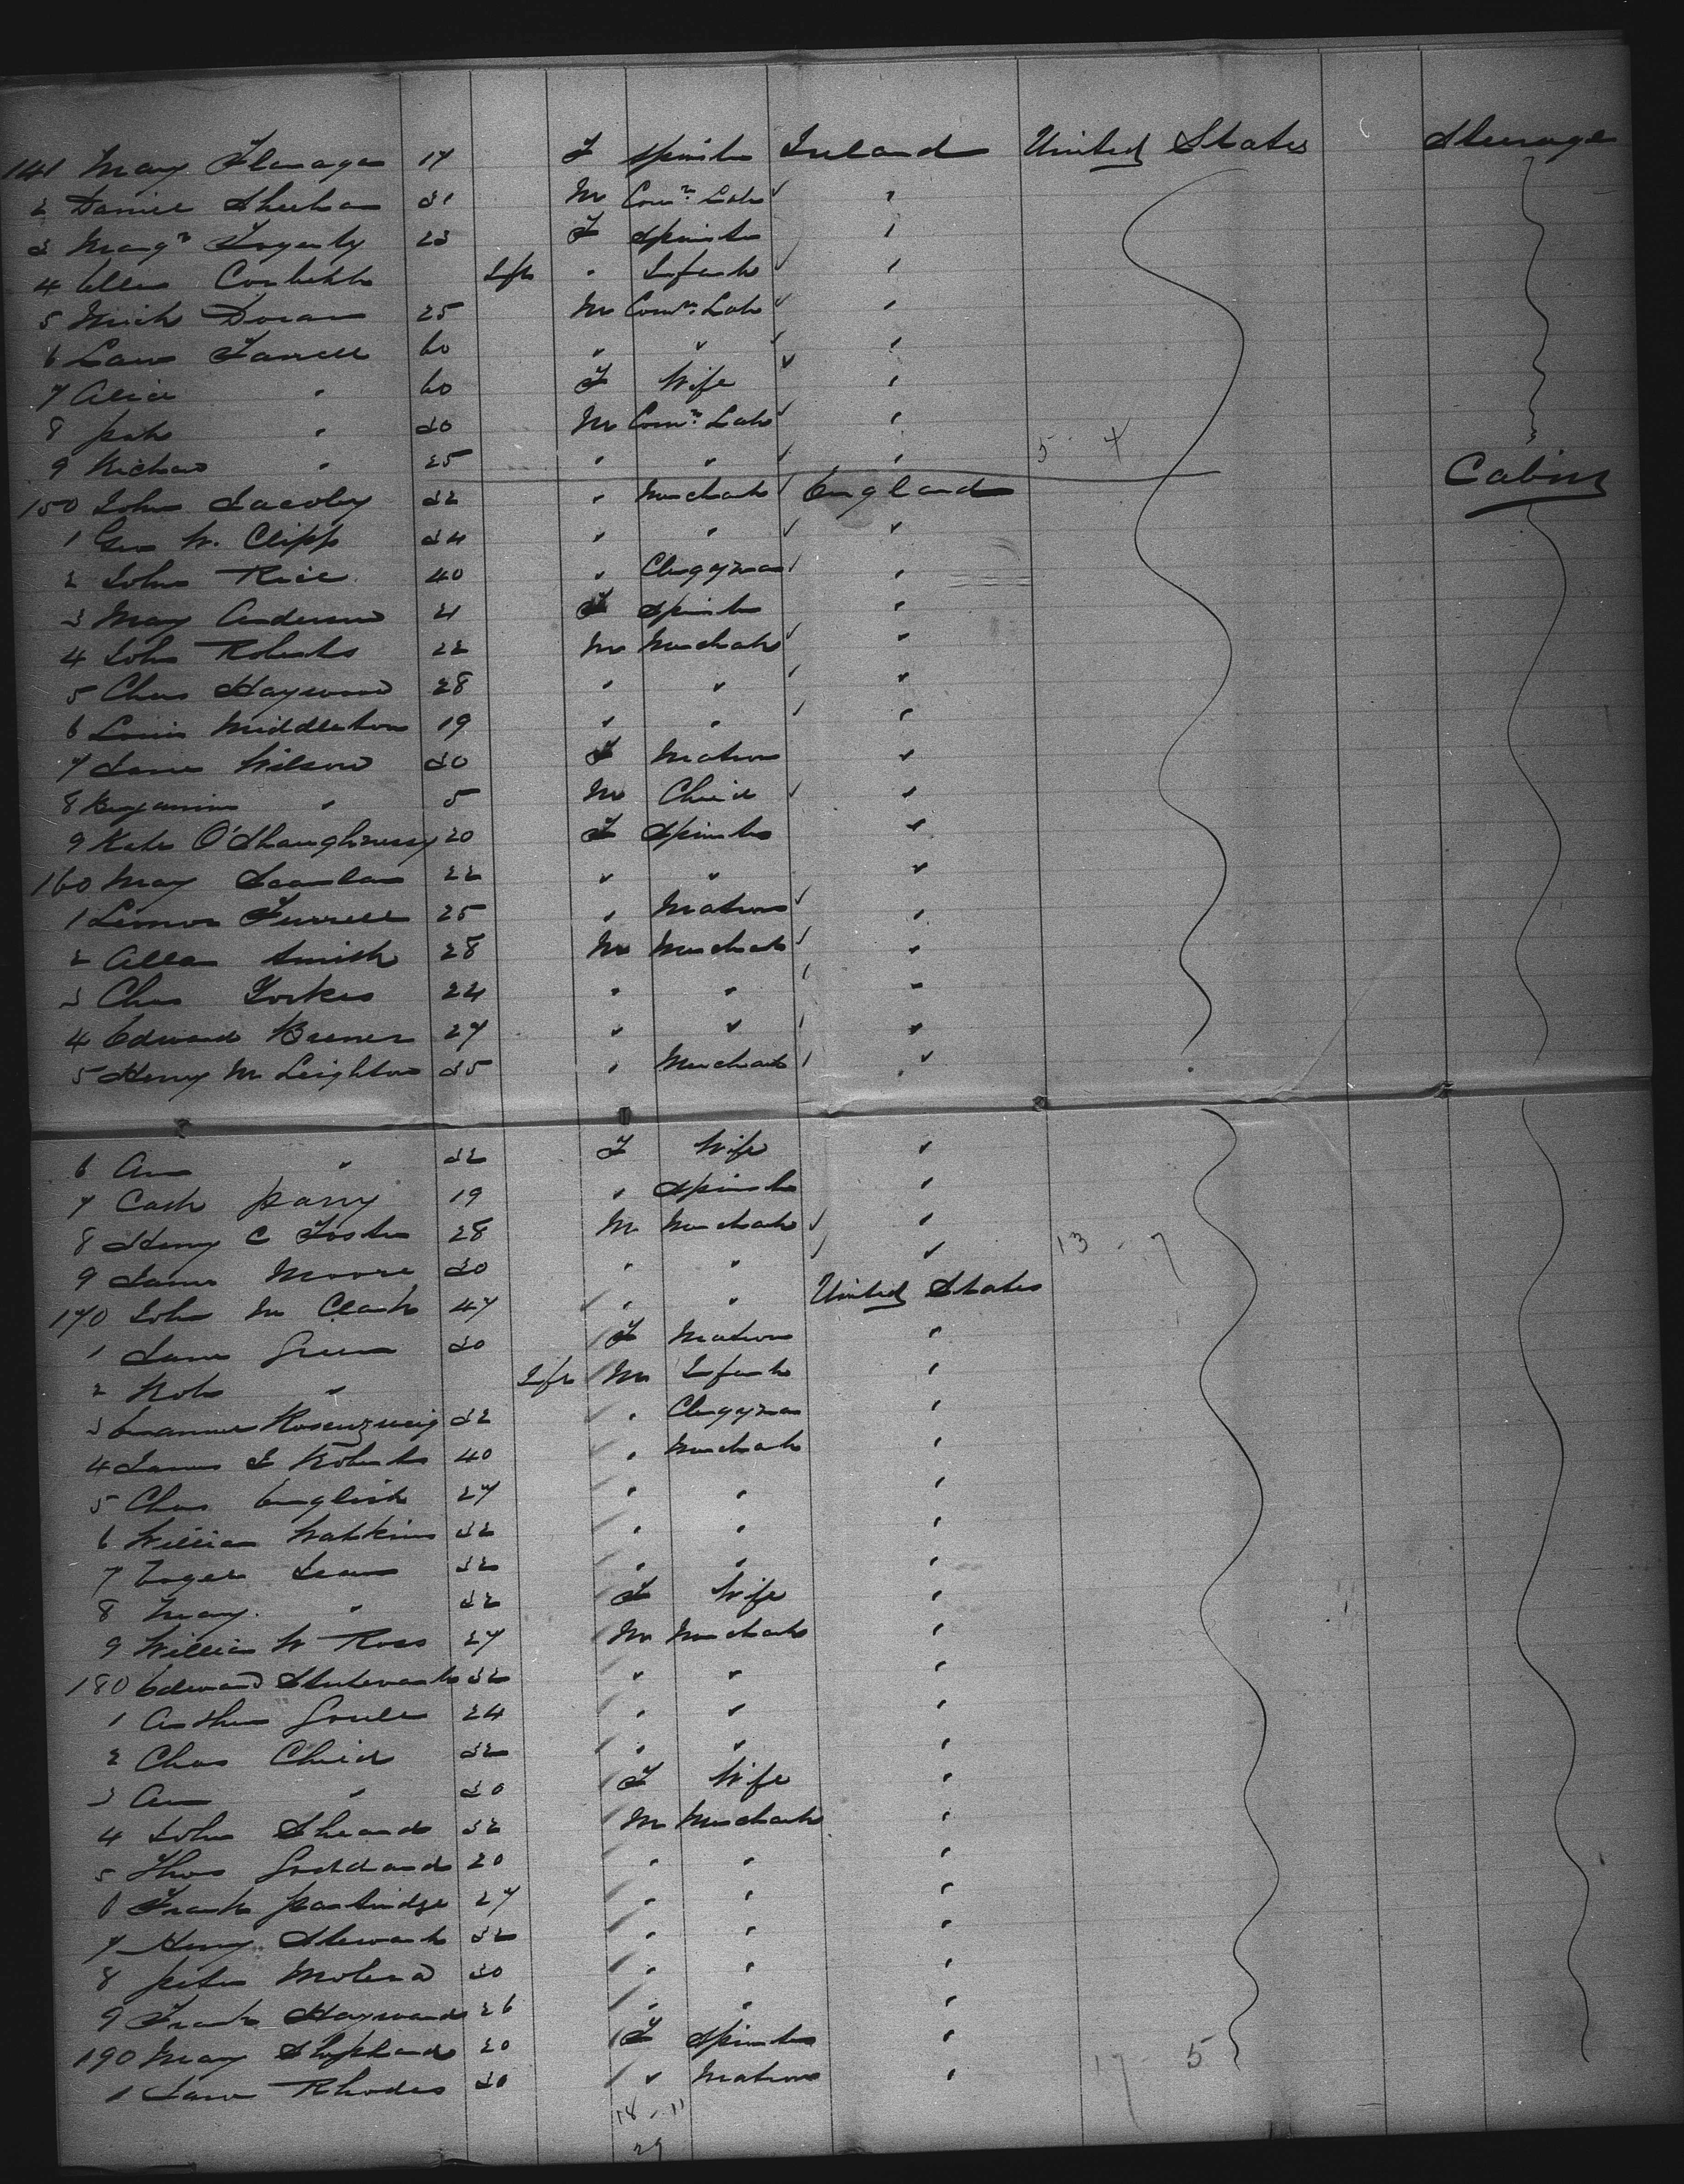 141 Mary Flanagan 17 F Spinster Ireland United States Steerage
2 Daniel Sheehan 31 M Comn Labr " "
3 Margt Fogerty 23 F Spinster "
4 Ellen Corbett Inft " Infant "
5 Mich Doran 25 M Comn Labr "
6 Law Farrell 60 " " "
7 Alice " 60 F Wife "
8 Pat " 30 M Comn Labr "
9 Richard " 25 " " " 5 4
150 John Jacoby 32 " Merchant England Cabin
1 Geo W. Clipp 34 " " "
2 John Rice 40 " Clergyman "
3 Mary Anderson 21 F Spinster "
4 John Roberts 22 M Merchant "
5 Chas Haywood 28 " " "
6 Louis Middleton 19 " " "
7 Jane Wilson 30 F Matron "
8 Benjamin " 5 M Child "
9 Kate O'Shaughnessy 20 F Spinster "
160 Mary Scanlan 22 " " "
1 Furrell 25 " Matron "
2 Allan Smith 28 M Merchant "
3 Chas Yorkes 24 " " "
4 Edward 27 " " "
5 Henry M Leighton 35 " Merchant "
6 Ann " 32 F Wife "
7 Cath Parry 19 " Spinster "
8 Henry C Foster 28 M Merchant "
9 James Moore 30 " " " 13 - 7
170 John M Clark 47 " " United States
1 Jane Green 30 F Matron "
2 Robt " Inft M Infant "
3 Emanuel Rosenzweig 32 " Clergyman "
4 James E Roberts 40 " Merchant "
5 Chas English 27 " " "
6 William Watkins 32 " " "
7 32 " " "
8 Mary " 32 F Wife "
9 William W Ross 27 M Merchant "
180 Edward 32 " " "
1 Arthur 24 " " "
2 Chas Child 32 " " "
3 Ann " 30 F Wife "
4 John 32 M Merchant "
5 Thos Goddard 20 " " "
6 Frank Partridge 27 " " "
7 Henry Stewart 32 " " "
8 Peter 30 " " "
9 Frank Hayward 26 " " "
190 Mary Shephard 20 F Spinster "
1 Jane Rhodes 30 " Matron " 17 - 5
18 - 11
29